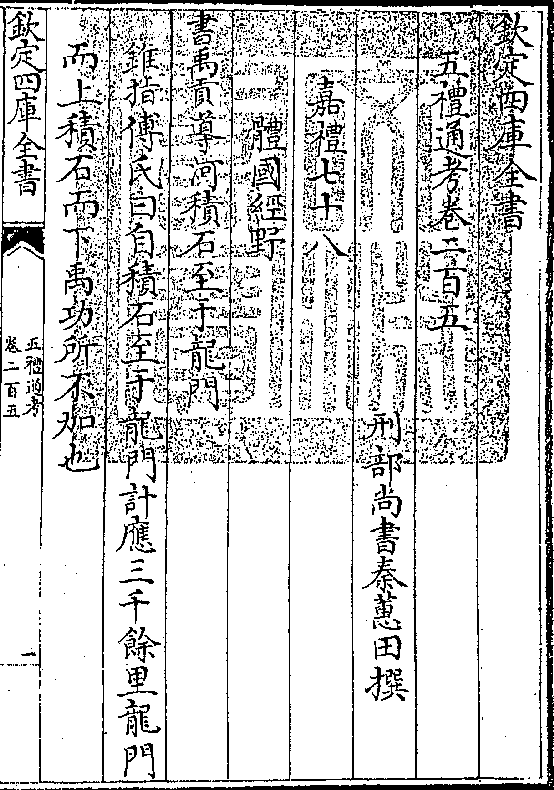 欽定四庫全書
五禮通考卷二百五
刑部尚書秦蕙田撰
嘉禮七十八
體國經野
書禹貢導河積石至于龍門
錐指傅氏曰自積石至于龍門計應三千餘里龍門
而上積石而下禹功所不加也
欽定四庫全書
五禮通考
卷二百五
一